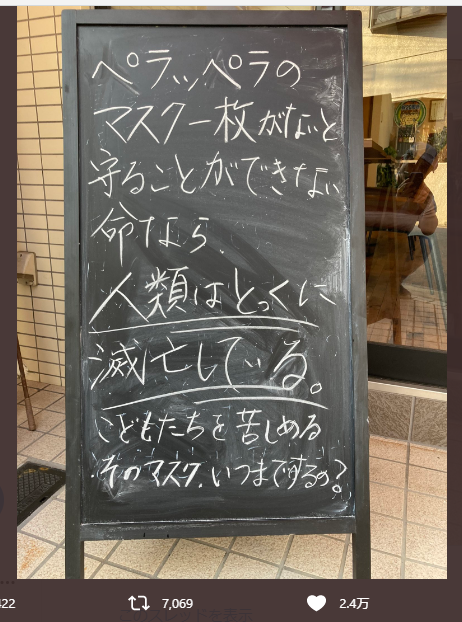 ペラッペラの
マスク一枚がないと
守ることができない
命なら、
人類はとっくに
滅亡している。
こどもたちを苦しめる
そのマスク、いつまでするの?
7,069
2.4万